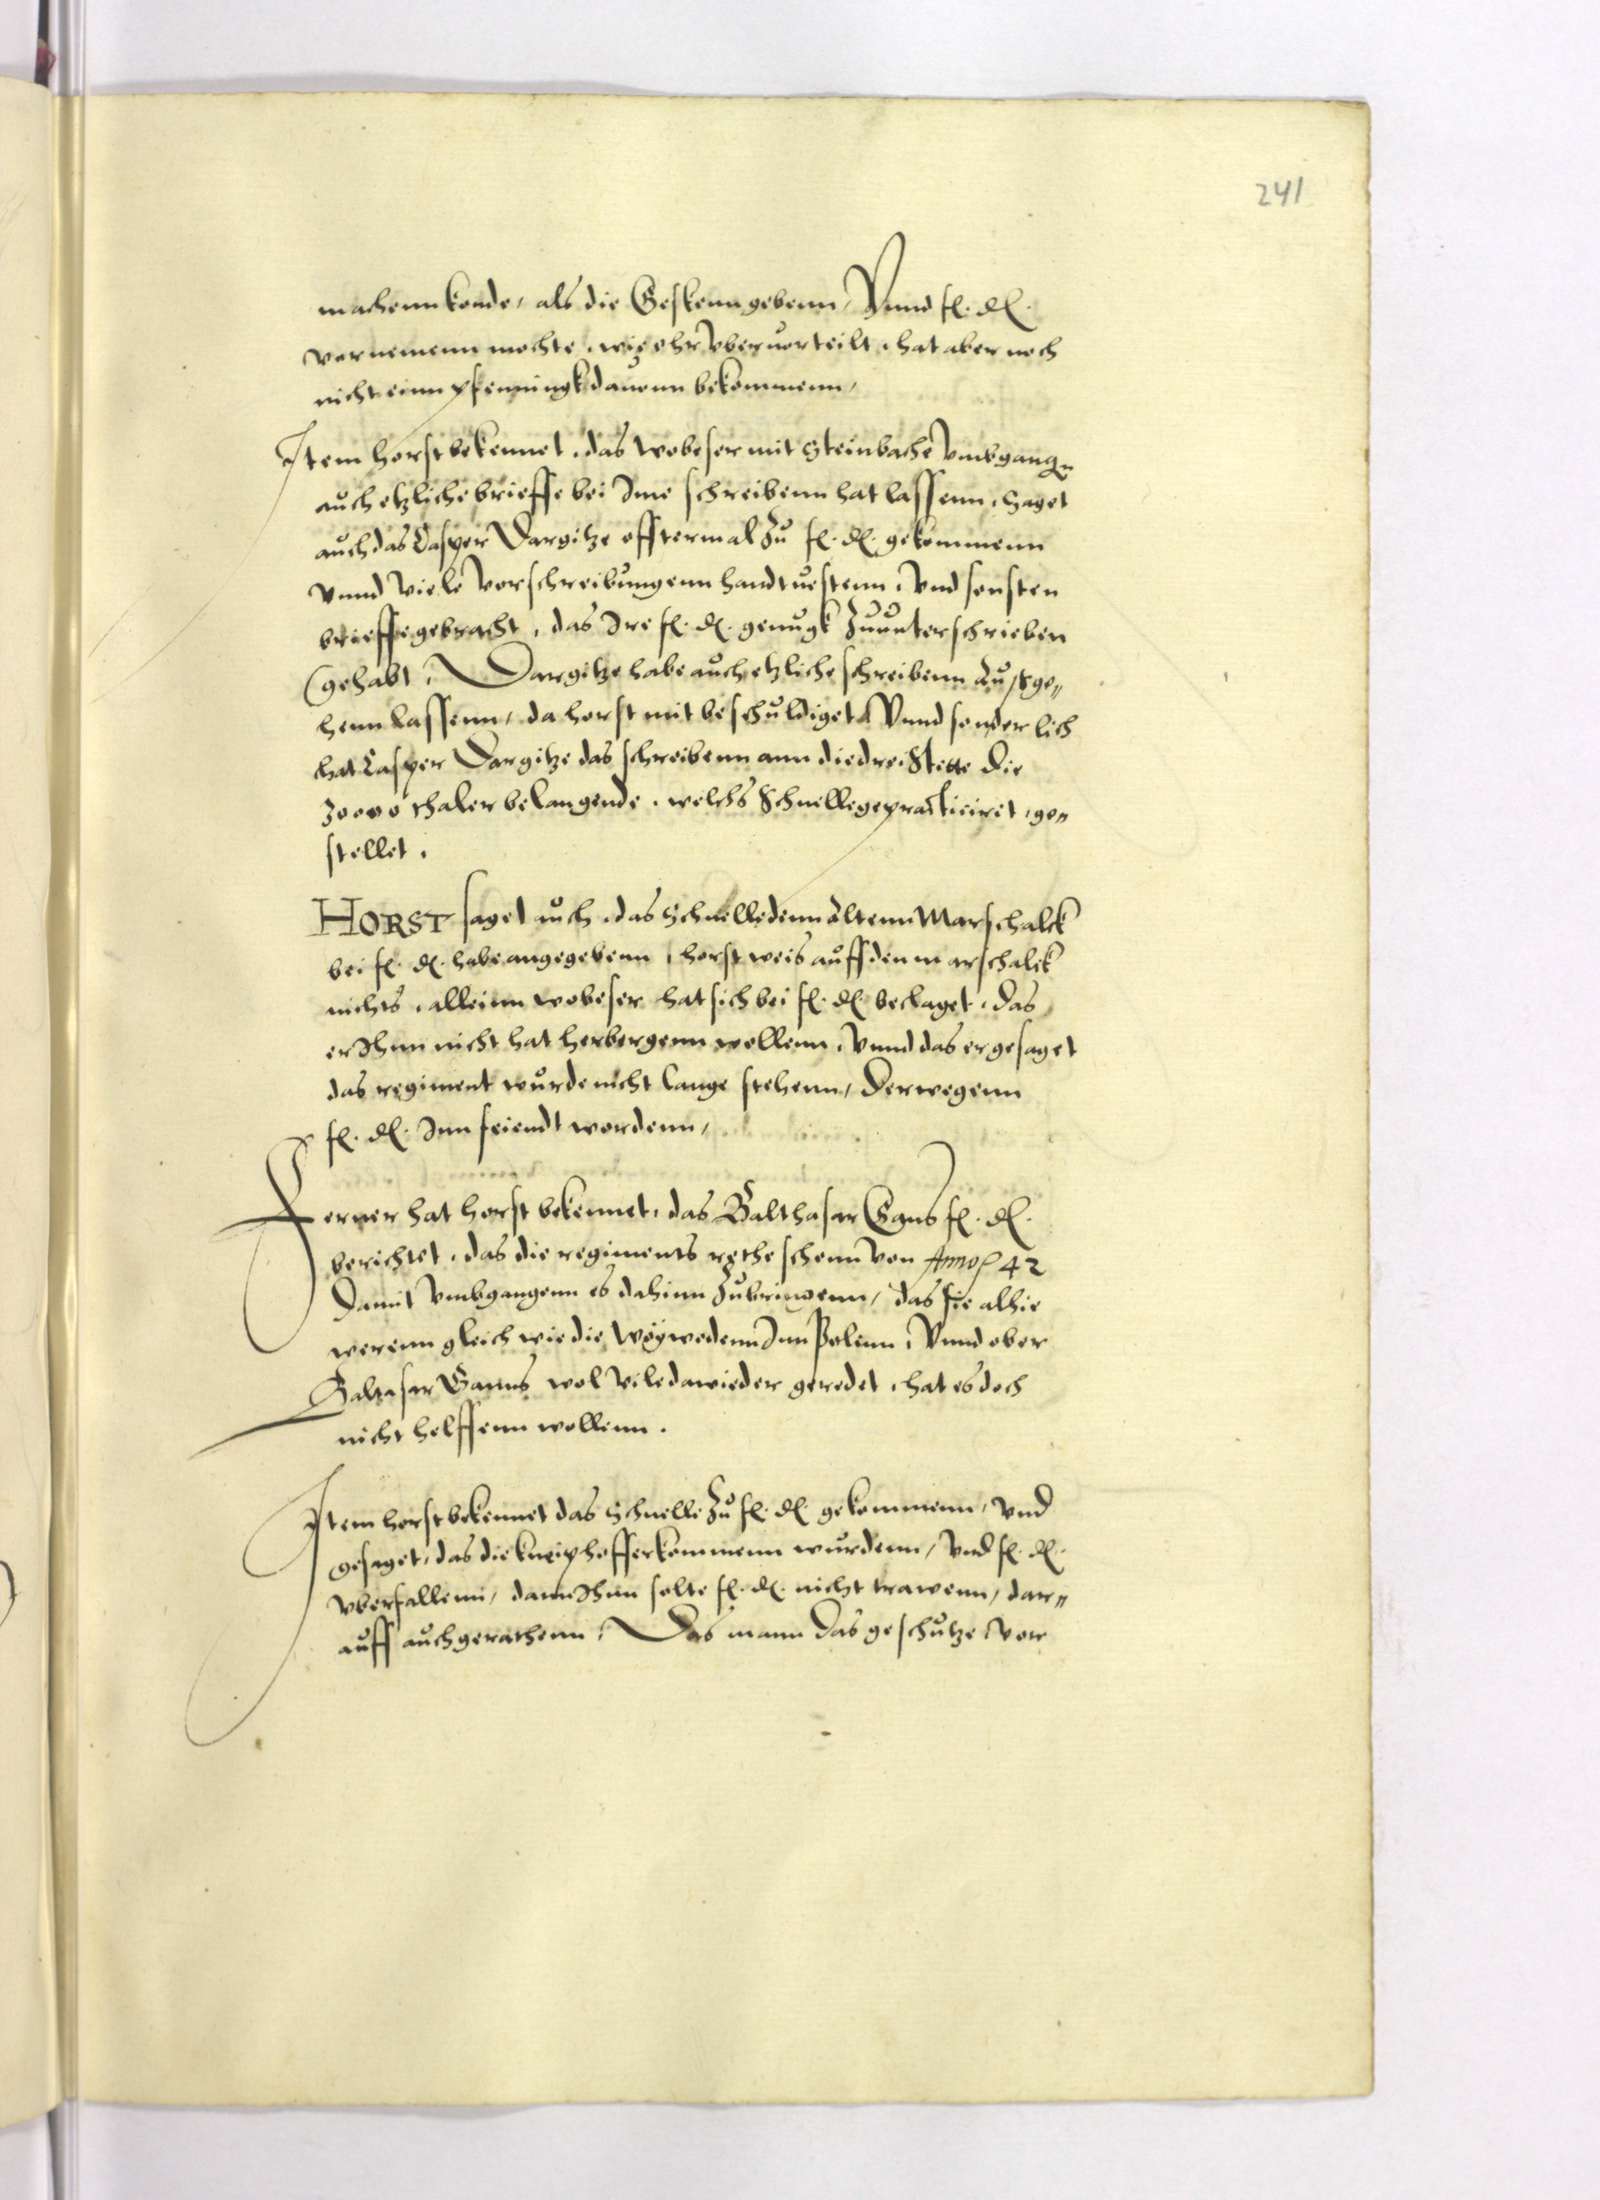 241
machenn konde, als die Gesteenn gebenn, Vnnd f. d.
vornemenn mochte, wie ehr vberuorteilt, hat aber noch
nicht einn pfenningk dauonn bekommenn,
Item Horst bekennet, das Wobeser mit Steinbache vmbgangen
auch etzliche brieffe bei Ime schreibenn hat lassenn, Saget
auch das Casper Dargitze offtermal zu f. d. gekommenn
vnnd viele vorschreibungenn handtuestenn, vnd sonsten
brieffe gebracht, das Ire f. d. genugk zuunterschrieben
gehabt, Dargitze habe auch etzliche schreibenn Ausge„
henn lassenn, da Horst mit beschuldiget, Vnnd sonderlich
hat Casper Dargitze das schreibenn ann die drei Stette die
30000 thaler belangende, welchs Schnelle gepracticiret, ge„
stellet.
HORST saget auch, das Schnelle denn Altenn Marschalck
bei f. d. habe angegebenn, Horst weis auff den marschalck
nichts, alleinn Wobeser hat sich bei f. d. beclaget, das
er Ihnn nicht hat herbergenn wollenn, Vnnd das er gesaget
das regiment wurde nicht lange stehenn, Derwegenn
f. d. Inn feiendt wordenn,
Ferner hat Horst bekennet, das Balthasar Gans f. d.
berichtet, das die regiments rethe schonn von Anno 42
Damit vmbgangenn es dahinn zubringenn, das sie alhie
werenn gleich wie die Woywodenn Inn Polenn, Vnnd ober
Baltasar Ganns wol vile dawieder geredet, hat es doch
nicht helffenn wollenn.
Item Horst bekennet das Schnelle zu f. d. gekommenn, vnd
gesaget, das die kneiphoffer kommenn wurdenn, vnd f. d.
vberfallenn, dann Ihnn solte f. d. nicht trawenn, dar„
auff auch gerathenn, Das mann das geschutze vor